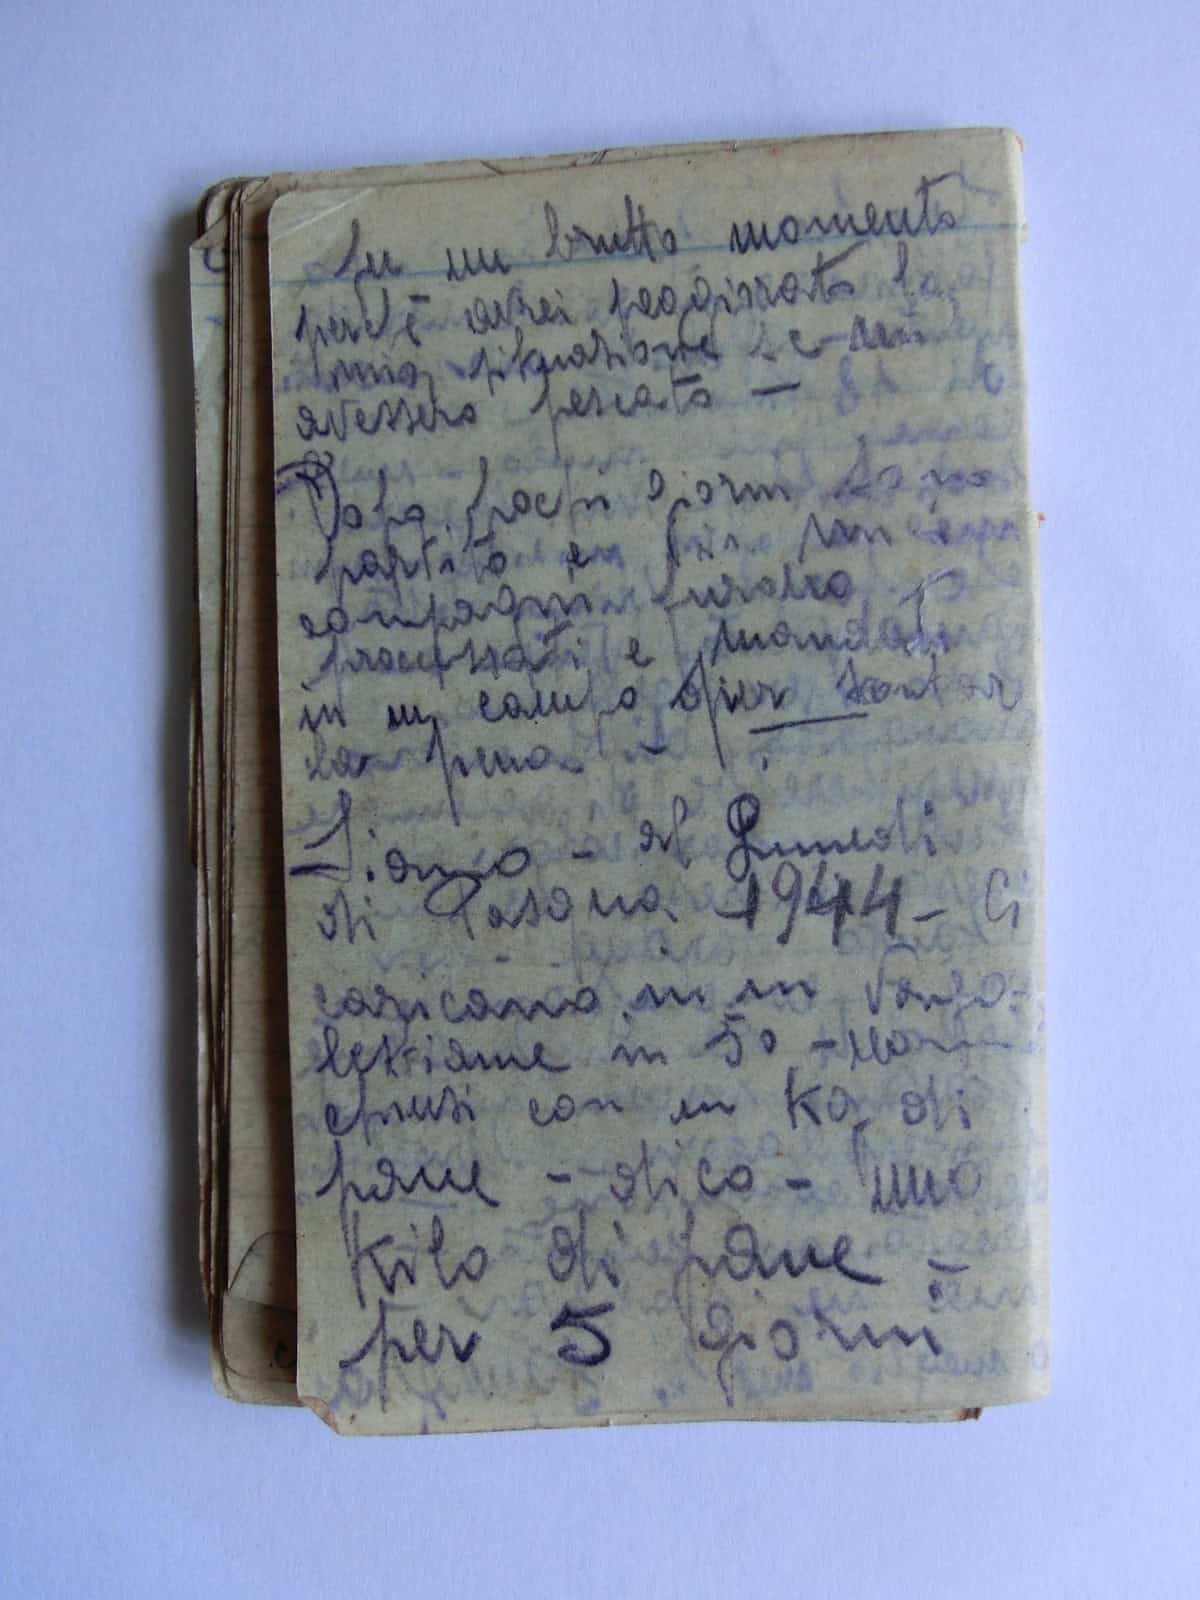 Fu un brutto momento
perchè avrei peggiorato la
mia situazione se mi
avessero pescato -
Dopo pochi giorni sono
partito e i miei
compagni furono
processati e mandati
in un campo per scontar
la pena -
Siamo - al Lunedi
di Pasqua 1944 - Ci
caricano in un Vago-
bestiame in 50 -
chiusi con un Kg di
pane - dico - uno
Kilo di pane -
per 5 giorni